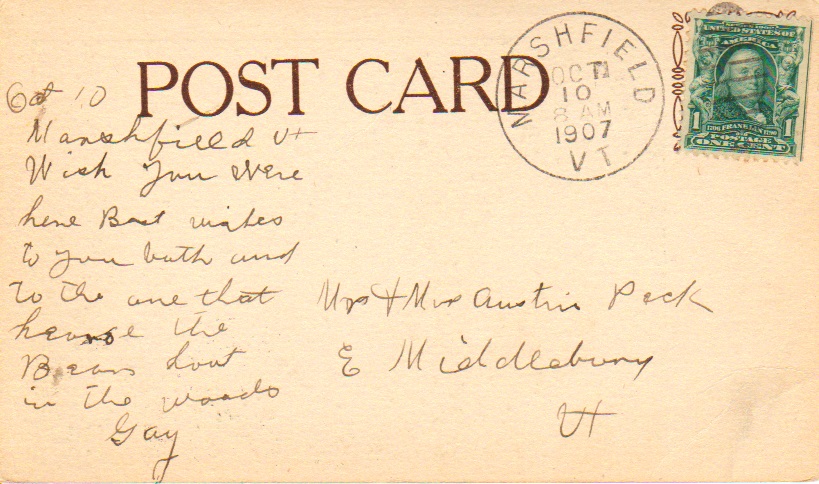 POST CARD
MARSHFIELD
OCT
10
8 AM
1907
VT.
SERIES 1902
UNITED STATES OF
AMERICA
1 FRANKLIN 1
POSTAGE
ONE CENT
Oct 10
Marshfield Vt
Wish you were
here Best wishes
to you both and
to the one that
the
Bears hoot
in the woods
Gay
Mr & Mrs Austin Peck
E Middlebury
Vt